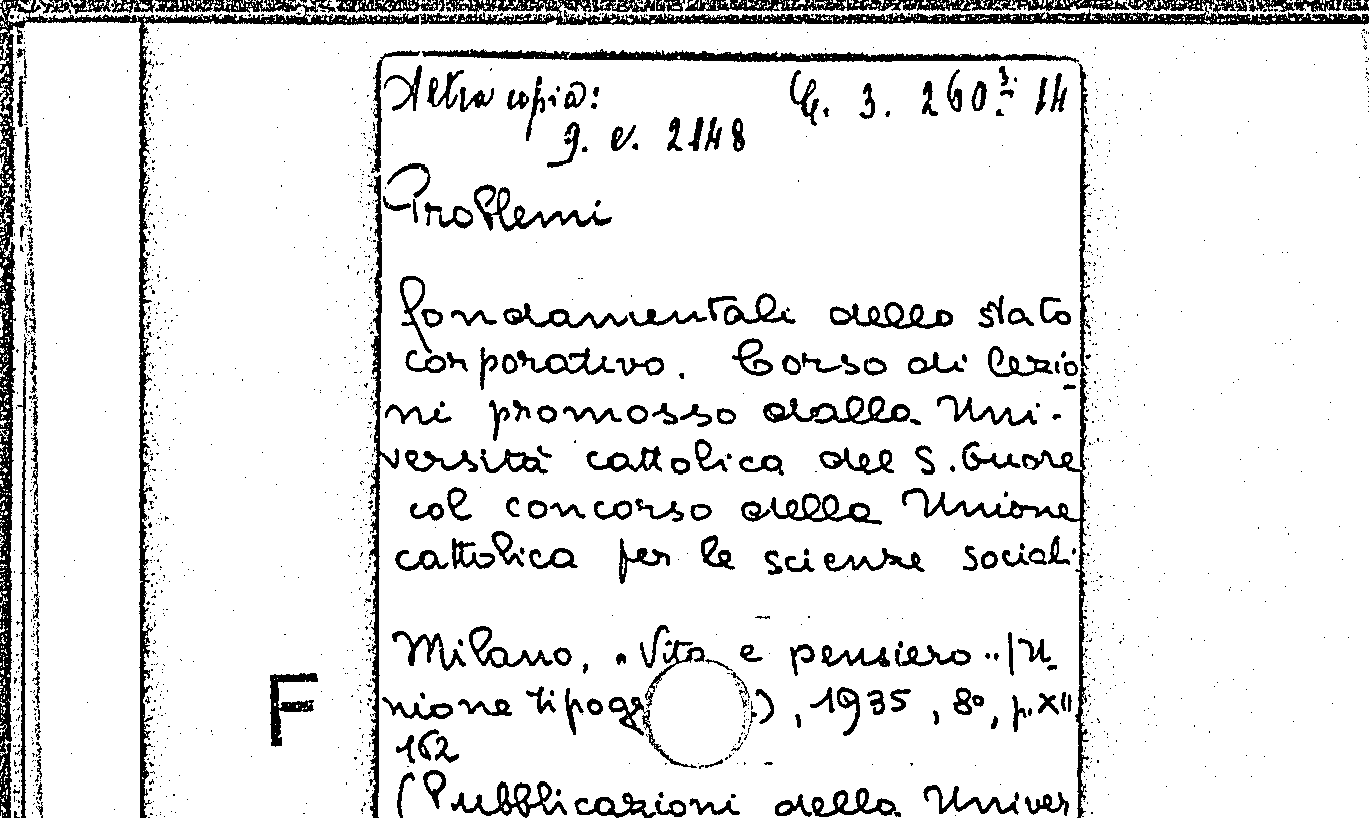 Altra copia: C. 3. 260³· 14
g. e. 2148
Problemi
fondamentali dello stato
corporativo. Corso di lezio-
ni promosso dalla Uni-
versità cattolica del S. Cuore
col concorso della Unione
cattolica per le scienze sociali
Milano, "Vita e pensiero" (U-
nione tipogr .), 1935, 8°, p. XII,
F
162
(Pubblicazioni della Univer